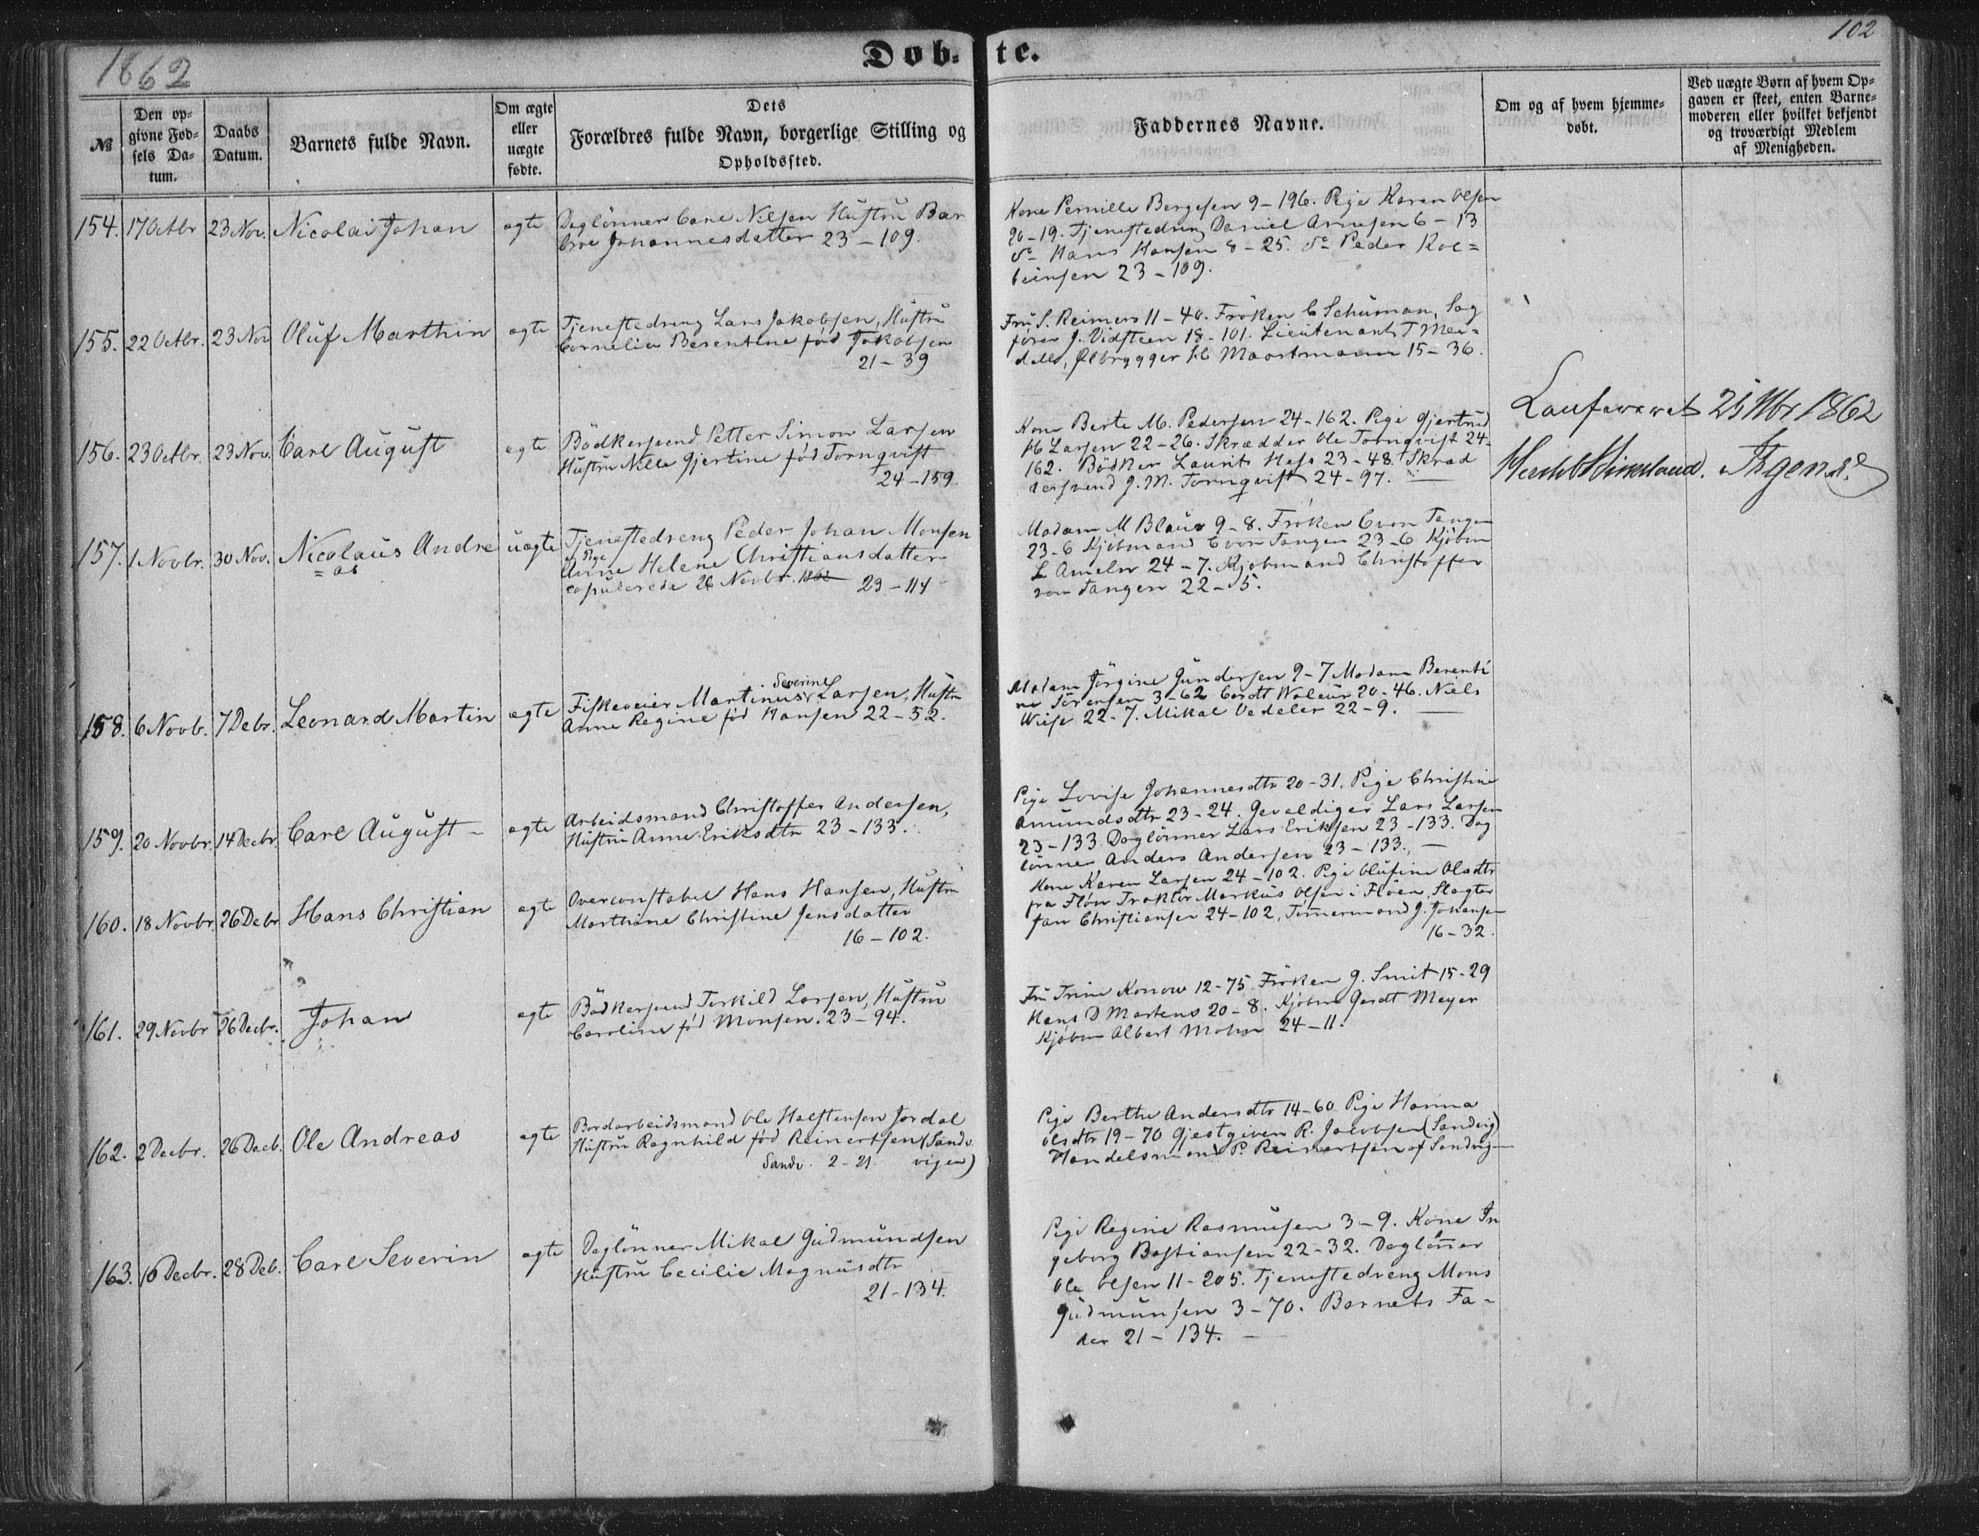 1862
Døb-te.
102
№
Den op-
givne Fød-
sels Da-
tum.
Daabs
Datum.
Barnets fulde Navn.
Om ægte
eller
uægte
fødte.
Dets
Forældres fulde Navn, borgerlige Stilling og
Opholdssted.
Faddernes Navne.
Om og af hvem hjemme-
døbt.
Ved uægte Børn af hvem Op-
gaven er skeet, enten Barne-
moderen eller hvilket bekjendt
og troværdigt Medlem
af Menigheden.
154. 17 Octbr 23 Nov. Nicolai Johan ægte
Daglønner Carl Nilsen Hustru Bar
broe Johannesdatter 23-109.
Kone Pernille Børgesen 9-196. Pige Karen Olsen
20-19. Tjenestedreng Daniel Arnesen 6-13
do Hans Hansen 8-25. do Peder Kol=
beinsen 23-109.
155. 22 Octbr. 23 Nov Oluf Marthin ægte
Tjenestedreng Lars Jakobsen, Hustru
Cornelia Berentine fød Jakobsen
21-39
Fru S. Reimers 11-40. Frøken C Schuman, Sag
fører J. Vidsteen 18-101. Lieutenant T Mei=
dell, Ølbrygger M 15-36.
156. 23 Octbr. 23 Nov. Carl August ægte
Bødkersvend Petter Simon Larsen
Hustru Nille Gjertine fød Tornqvist
24-159.
Kone Berte M. Pedersen 24-162. Pige Gjertrud
M Larsen 22-26. Skrædder Ole Tornqvist 24-
162. Bødker Laurits Hess 23-48. Skræd
dersvend J. M. Tornqvist 24-97.
25 Nbr 1862
157. 1 Novbr. 30 Nov. Nicolaus Andre
=as uægte
Tjenestedreng Peder Johan Monsen
Pige
Anne Helene Christiansdatter
copulerede 26 Novbr. 1862 23-114
Madam M Blaue 9-8. Frøken C von Tangen
23-6 Kjøbmand C von Tangen 23-6 Kjøbm
L Ameln 24-7. Kjøbmand Christoffer
von Tangen 22-15.
158. 6 Novb. 7 Debr. Leonard Martin ægte
Severine
Fiskeveier Martinus Larsen, Hustru
Anne Regine fød Hansen 22-52.
Madam Jørgine Gundersen 9-7 Madam Berenti
ne Sørensen 3-62 Cordt Waleur 20-46. Niels
Wiese 22-7. Mikal Vedeler 22-9.
159. 20 Novbr. 14 Decbr. Carl August - ægte
Arbeidsmand Christoffer Andersen,
Hustru Anne Eriksdtr 23-133.
Pige Lovise Johannesdtr 20-31. Pige Christine
Amundsdtr 23-24. Geveldiger Lars Larsen
23-133 Daglønner Lars Eriksen 23-133. Dag
lønner Anders Andersen 23-133.
160. 18 Novbr. 26 Debr Hans Christian ægte
Overconstabel Hans Hansen, Hustru
Marthine Christine Jensdatter
16-102.
Kone Karen Larsen 24-102. Pige Olufine Olsdtr
fra Fløn Traktør Markus Olsen i Fløen Slagter
Jan Christiansen 24-102, Tømermand J. Johansen
16-32.
161. 29 Novbr 26 Decbr. Johan ægte
Bødkersvend Torkild Larsen, Hustru
Caroline fød Monsen. 23-94.
Fru Trine Konow 12-75 Frøken G. Smit 15-29
Hans D Martens 20-8. Kjøbm Gerdt Meyer
Kjøbm Albert Mohn 24-11.
162. 2 Decbr. 26 Decb. Ole Andreas ægte
Bordarbeidsmand Ole Halstensen Jordal
Hustru Ragnhild fød Reinertsen (Sandv.
Sandv. 2-21. vigen)
Pige Berthe Andersdtr 14-60 Pige Hanna
Olsdtr 19-70 Gjestgiver R. Jacobsen (Sandvig)
Handelsmand P. Reinertsen af Sandvig
163. 10 Decbr. 28 Deb. Carl Severin ægte
Daglønner Mikal Gudmundsen
Hustru Cecilie Magnusdtr
21-134.
Pige Regine Rasmussen 3-9. Kone In
geborg Bastiansen 22-32. Daglønner
Ole Olsen 11-205. Tjenestedreng Mons
Gudmunsen 3-70. Barnets Fa-
der 21-134.